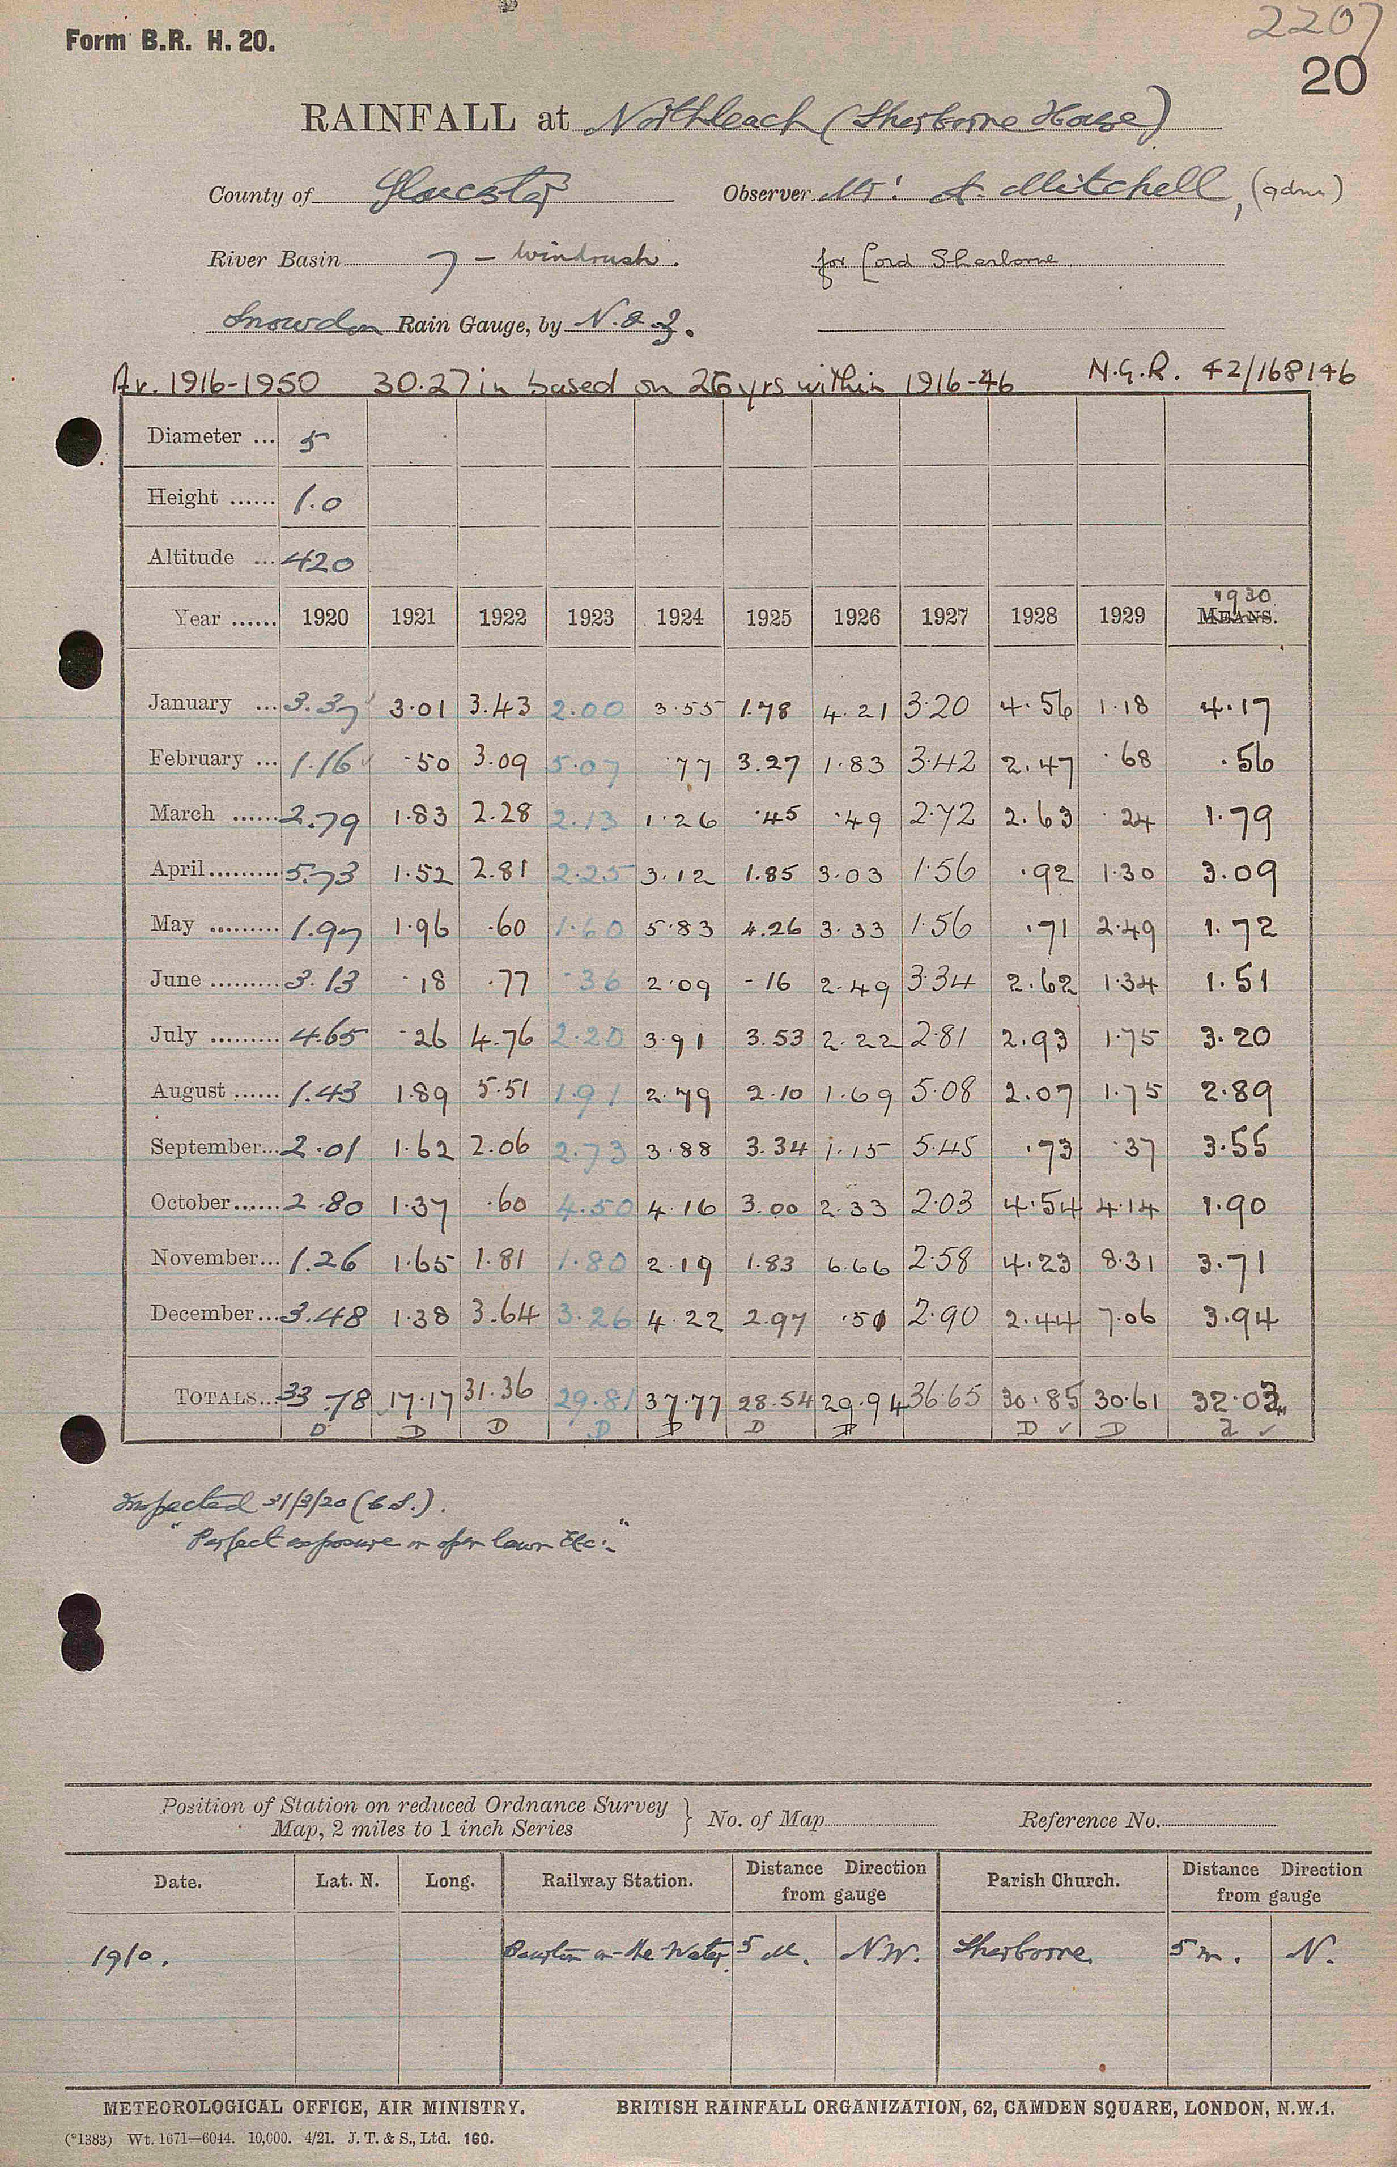 2207
Form B.R. H. 20.
20
RAINFALL at Northleach (Sherborne House)
County of Gloucester Observer Mr. A. Mitchell, (gdnr)
River Basin 7 - Windrush. for Lord Sherborne
Snowdon Rain Gauge, by N. & Z.
Av. 1916-1950 30.27 in based on 26 yrs within 1916-46 N.G.R. 42/168146
Diameter ... 5
Height ...... 1.0
Altitude ... 420
1930
Year ...... 1920 1921 1922 1923 1924 1925 1926 1927 1928 1929 MEANS.
January ... 3.37 3.01 3.43 2.00 3.55 1.78 4.21 3.20 4.56 1.18 4.17
February ... 1.16 .50 3.09 5.07 .77 3.27 1.83 3.42 2.47 .68 .56
March ...... 2.79 1.83 2.28 2.13 1.26 .45 .49 2.72 2.63 .24 1.79
April......... 5.73 1.52 2.81 2.25 3.12 1.85 3.03 1.56 .92 1.30 3.09
May ......... 1.97 1.96 .60 1.60 5.83 4.26 3.33 1.56 .71 2.49 1.72
June ......... 3.13 .18 .77 .36 2.09 .16 2.49 3.34 2.62 1.34 1.51
July ......... 4.65 .26 4.76 2.20 3.91 3.53 2.22 2.81 2.93 1.75 3.20
August ...... 1.43 1.89 5.51 1.91 2.79 2.10 1.69 5.08 2.07 1.75 2.89
September... 2.01 1.62 2.06 2.73 3.88 3.34 1.15 5.45 .73 .37 3.55
October...... 2.80 1.37 .60 4.50 4.16 3.00 2.33 2.03 4.54 4.14 1.90
November... 1.26 1.65 1.81 1.80 2.19 1.83 6.66 2.58 4.23 8.31 3.71
December... 3.48 1.38 3.64 3.26 4.22 2.97 .51 2.90 2.44 7.06 3.94
TOTALS... 33.78 17.17 31.36 29.81 37.77 28.54 29.94 36.65 30.85 30.61 32.03
D D D D D D D D ✓ D ✓
Inspected 31/3/20 (C.S.).
"Perfect exposure on open lawn Etc."
Position of Station on reduced Ordnance Survey
Map, 2 miles to 1 inch Series } No. of Map Reference No.
Date. Lat. N. Long. Railway Station. Distance Direction from gauge Parish Church. Distance Direction from gauge
1910. Bourton on-the Water 5 M. NW. Sherborne 5 m. N.
METEOROLOGICAL OFFICE, AIR MINISTRY. BRITISH RAINFALL ORGANIZATION, 62, CAMDEN SQUARE, LONDON, N.W.1.
(*1383) Wt. 1671—6044. 10,000. 4/21. J. T. & S., Ltd. 160.